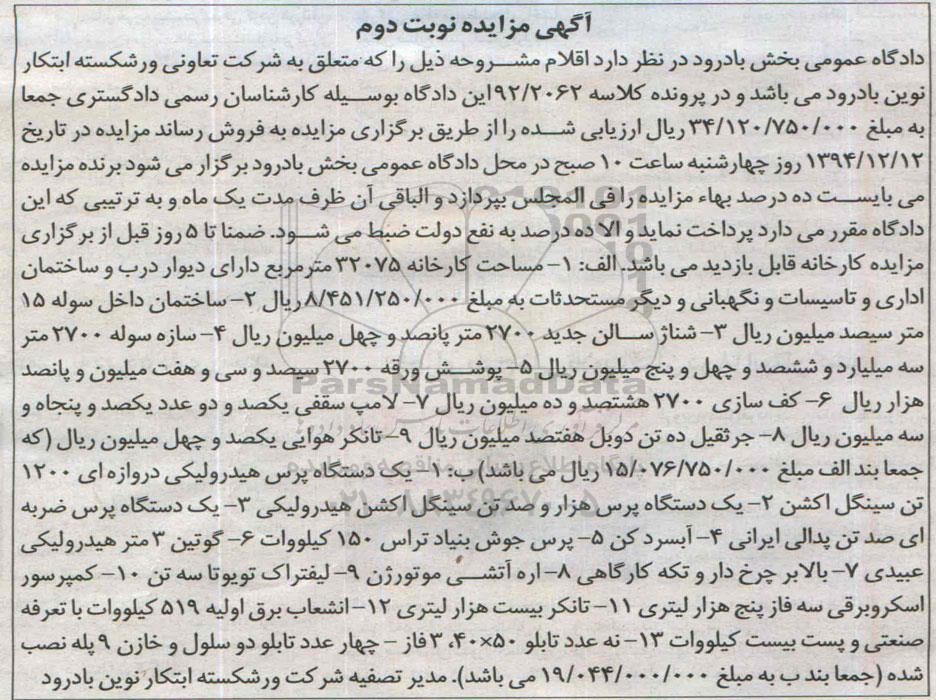 آگهی مزایده نوبت دوم
دادگاه عمومی بخش بادرود در نظر دارد اقلام مشروحه ذیل را که متعلق به شرکت تعاونی ورشکسته ابتکار
نوین بادرود می باشد و در پرونده کلاسه ۹۲/۲۰۶۲ این دادگاه بوسیله کارشناسان رسمی دادگستری جمعا
به مبلغ ۳۴/۱۲۰/۷۵۰/۰۰۰ ریال ارزیابی شده را از طریق برگزاری مزایده به فروش رساند مزایده در تاریخ
۱۳۹۴/۱۲/۱۲ روز چهارشنبه ساعت ۱۰ صبح در محل دادگاه عمومی بخش بادرود برگزار می شود برنده مزایده
می بایست ده درصد بهاء مزایده را فی المجلس بپردازد و الباقی آن ظرف مدت یک ماه و به ترتیبی که این
دادگاه مقرر می دارد پرداخت نماید و الا ده درصد به نفع دولت ضبط می شود. ضمنا تا ۵ روز قبل از برگزاری
مزایده کارخانه قابل بازدید می باشد. الف: ۱- مساحت کارخانه ۳۲۰۷۵ مترمربع دارای دیوار درب و ساختمان
اداری و تاسیسات و نگهبانی و دیگر مستحدثات به مبلغ ۸/۴۵۱/۲۵۰/۰۰۰ ریال ۲- ساختمان داخل سوله ۱۵
متر سیصد میلیون ریال ۳- شناژ سالن جدید ۲۷۰۰ متر پانصد و چهل میلیون ریال ۴- سازه سوله ۲۷۰۰ متر
سه میلیارد و ششصد و چهل و پنج میلیون ریال ۵- پوشش ورقه ۲۷۰۰ سیصد و سی و هفت میلیون و پانصد
هزار ریال ۶- کف سازی ۲۷۰۰ هشتصد و ده میلیون ریال ۷- لامپ سقفی یکصد و دو عدد یکصد و پنجاه و
سه میلیون ریال ۸- جرثقیل ده تن دوبل هفتصد میلیون ریال ۹- تانکر هوایی یکصد و چهل میلیون ریال (که
جمعا بند الف مبلغ ۱۵/۰۷۶/۷۵۰/۰۰۰ ریال می باشد) ب: ۱- یک دستگاه پرس هیدرولیکی دروازه ای ۱۲۰۰
تن سینگل اکشن ۲- یک دستگاه پرس هزار و صد تن سینگل اکشن هیدرولیکی ۳- یک دستگاه پرس ضربه
ای صد تن پدالی ایرانی ۴- آبسرد کن ۵- پرس جوش بنیاد تراس ۱۵۰ کیلووات ۶- گوتین ۳ متر هیدرولیکی
عبیدی ۷- بالابر چرخ دار و تکه کارگاهی ۸- اره آتشی موتورژن ۹- لیفتراک تویوتا سه تن ۱۰- کمپرسور
اسکروبرقی سه فاز پنج هزار لیتری ۱۱- تانکر بیست هزار لیتری ۱۲- انشعاب برق اولیه ۵۱۹ کیلووات با تعرفه
صنعتی و پست بیست کیلووات ۱۳- نه عدد تابلو ۵۰×۴۰، ۳ فاز - چهار عدد تابلو دو سلول و خازن ۹ پله نصب
شده (جمعا بند ب به مبلغ ۱۹/۰۴۴/۰۰۰/۰۰۰ می باشد). مدیر تصفیه شرکت ورشکسته ابتکار نوین بادرود
ParsNamadData